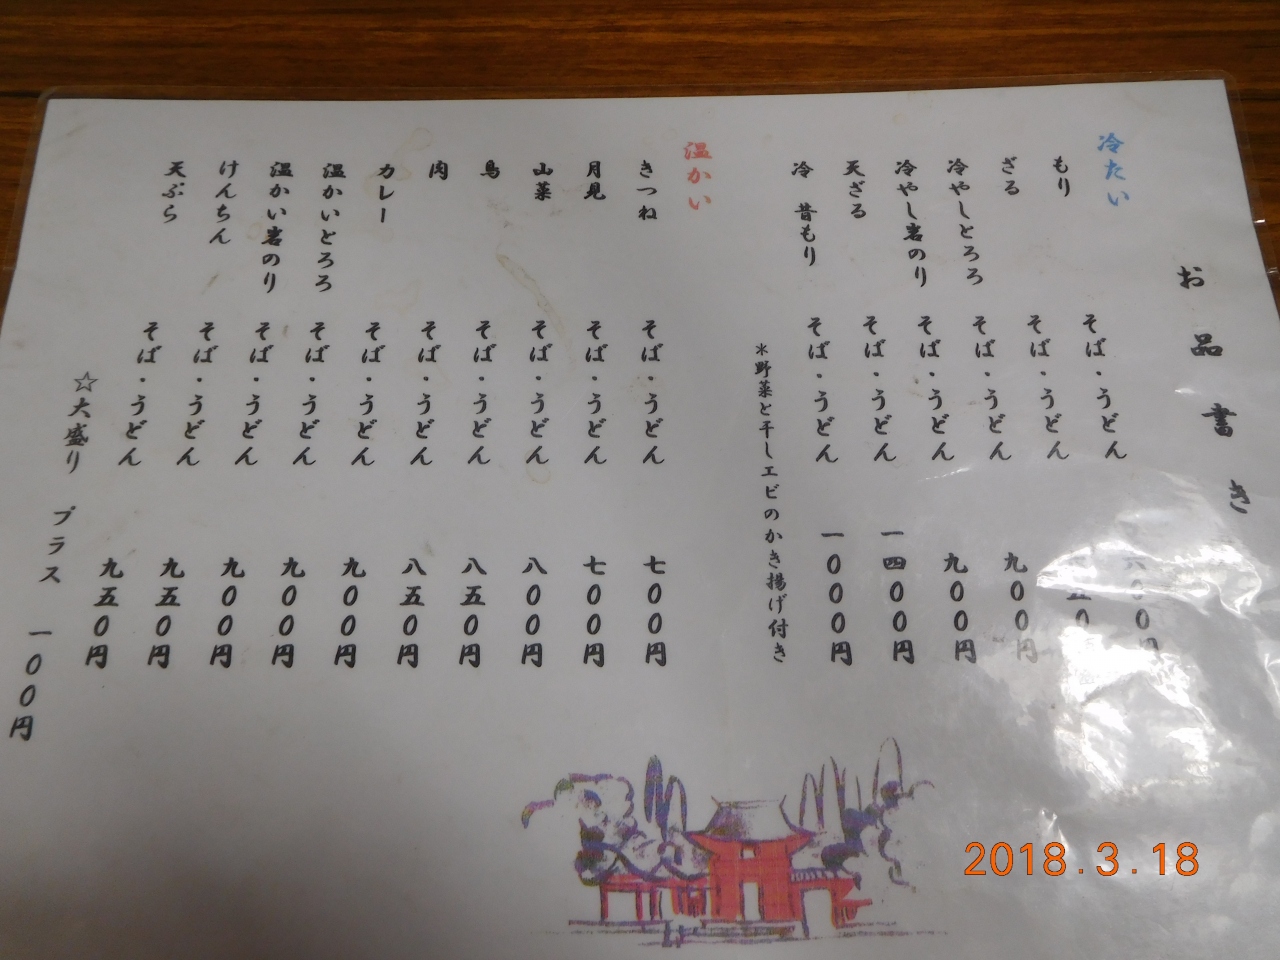 お品書き
冷たい
もり そば・うどん 六〇〇円
ざる そば・うどん
冷やしとろろ そば・うどん 九〇〇円
冷やし岩のり そば・うどん 九〇〇円
天ざる そば・うどん 一四〇〇円
冷 昔もり そば・うどん 一〇〇〇円
＊野菜と干しエビのかき揚げ付き
温かい
きつね そば・うどん 七〇〇円
月見 そば・うどん 七〇〇円
山菜 そば・うどん 八〇〇円
鳥 そば・うどん 八五〇円
肉 そば・うどん 八五〇円
カレー そば・うどん 九〇〇円
温かいとろろ そば・うどん 九〇〇円
温かい岩のり そば・うどん 九〇〇円
けんちん そば・うどん 九五〇円
天ぷら そば・うどん 九五〇円
☆大盛り プラス 一〇〇円
2018.3.18